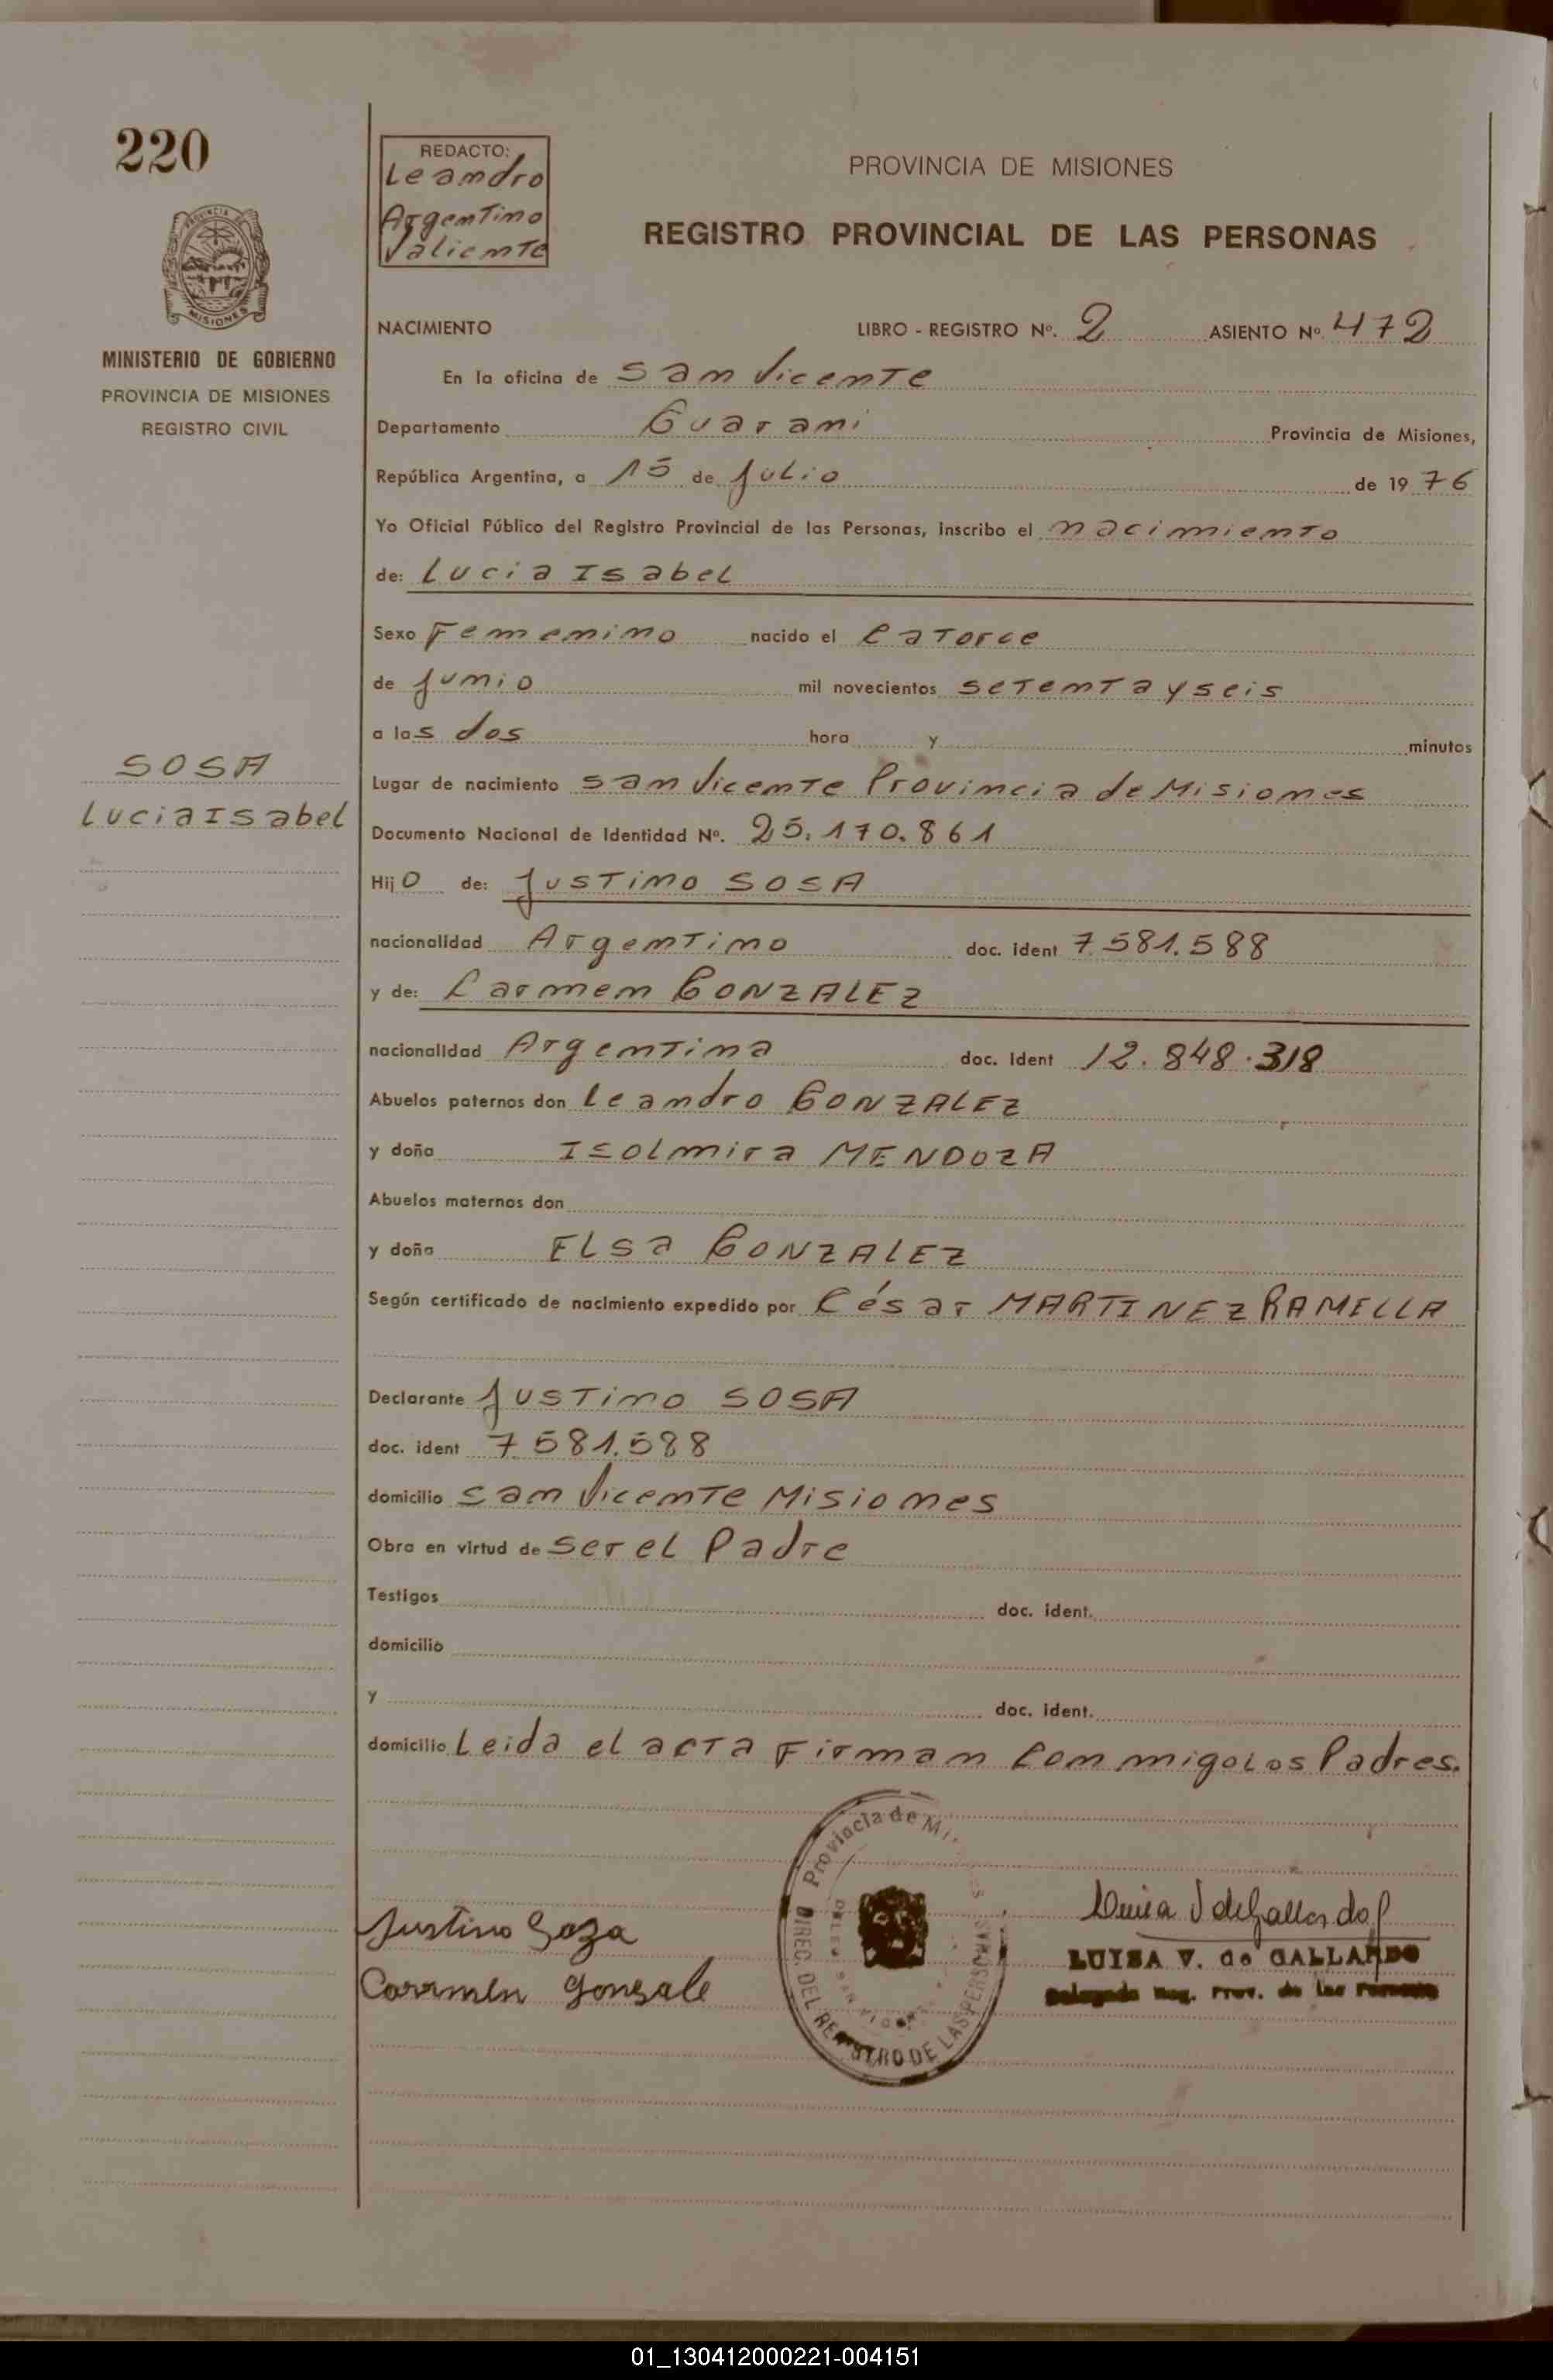 220
REDACTO:
Leandro
Argentino
Valiente
PROVINCIA DE MISIONES
REGISTRO PROVINCIAL DE LAS PERSONAS
PROVINCIA DE
MISIONES
MINISTERIO DE GOBIERNO
PROVINCIA DE MISIONES
REGISTRO CIVIL
NACIMIENTO LIBRO - REGISTRO Nº. 2 ASIENTO Nº. 472
En la oficina de San Vicente
Departamento Guarani Provincia de Misiones,
República Argentina, a 15 de Julio de 1976
Yo Oficial Público del Registro Provincial de las Personas, inscribo el nacimiento
de: Lucia Isabel
Sexo Femenino nacido el Catorce
de Junio mil novecientos setenta y seis
a las dos hora y minutos
SOSA
Lucia Isabel
Lugar de nacimiento San Vicente Provincia de Misiones
Documento Nacional de Identidad Nº. 25.170.861
Hijo de: Justino SOSA
nacionalidad Argentino doc. ident 7.581.588
y de: Carmen GONZALEZ
nacionalidad Argentina doc. ident 12.848.318
Abuelos paternos don Leandro GONZALEZ
y doña Isolmira MENDOZA
Abuelos maternos don
y doña Elsa GONZALEZ
Según certificado de nacimiento expedido por César MARTINEZ RAMELLA
Declarante Justino SOSA
doc. ident 7.581.588
domicilio San Vicente Misiones
Obra en virtud de ser el Padre
Testigos doc. ident.
domicilio
y doc. ident.
domicilio Leida el acta Firman Conmmigo los Padres.
Provincia de Mi
DIREC. DEL REGISTRO DE LAS PERSONAS
Justino Soza
Carrmen Gonsale
LUISA V. de GALLARDO
Delegada Reg. Prov. de las Personas
01_130412000221-004151